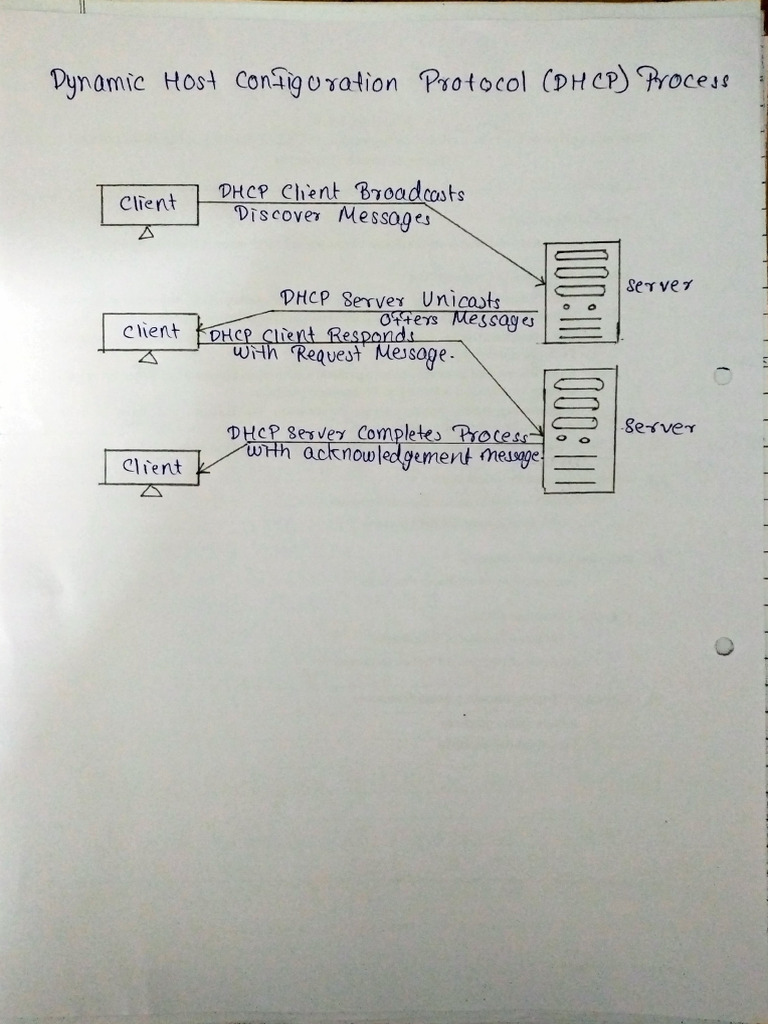 Dynamic Host Configuration Protocol (DHCP) Process
Client
DHCP Client Broadcasts
Discover Messages
Server
DHCP Server Unicasts
Offers Messages
Client
DHCP Client Responds
With Request Message.
Server
DHCP Server Completes Process
With acknowledgement message.
Client